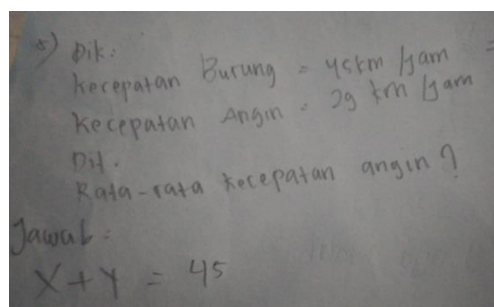 5) Dik:
Kecepatan Burung = 45km/jam =
Kecepatan Angin = 29 km/jam
Dit.
Rata-rata kecepatan angin?
Jawab:
X+Y = 45